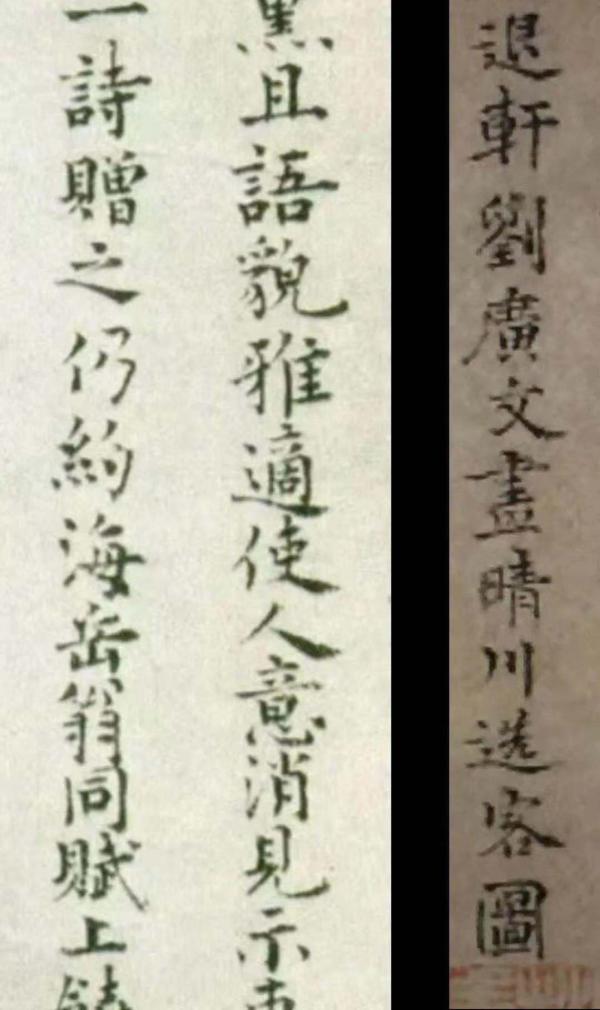 退軒劉廣文畫晴川送客圖
黑且語貌雅適使人意消見示
一詩贈之仍約海岳翁同賦上